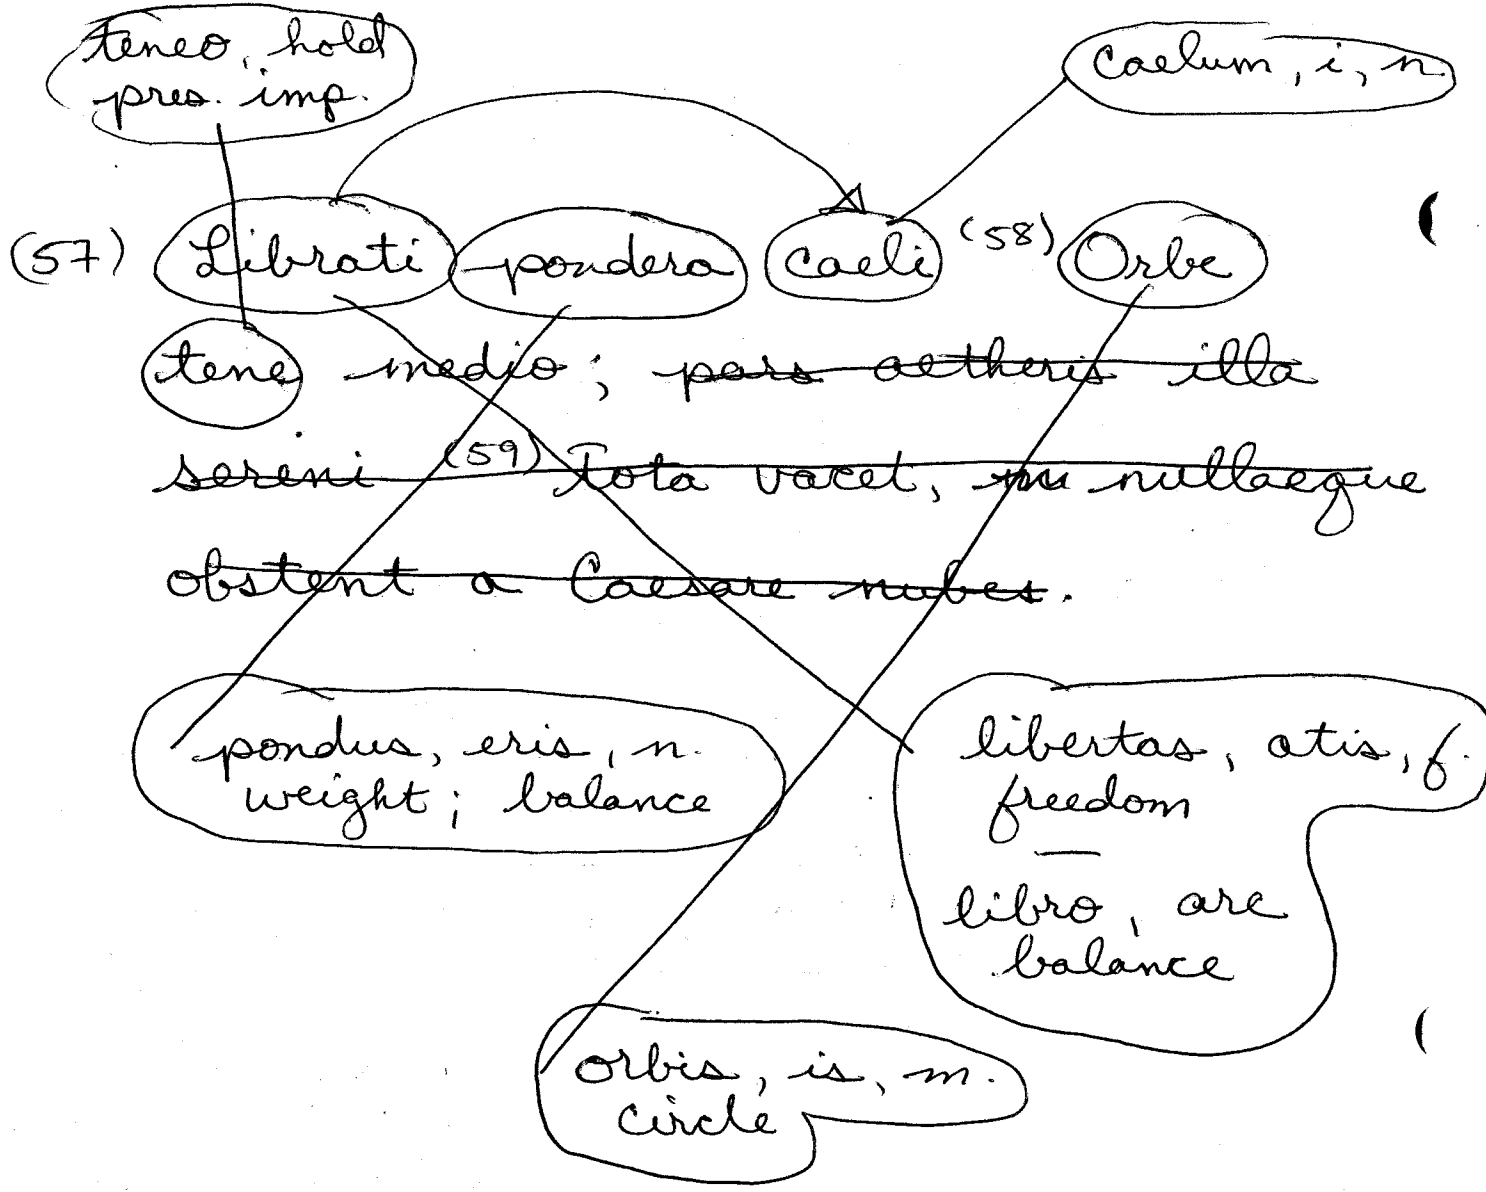 teneo, hold
pres. imp.
caelum, i, n.
(57) Librati pondera caeli (58) Orbe
tene medio; pars aetheris illa
sereni (59) Tota vacet, nullaeque
obstent a Caesare nubes.
pondus, eris, n.
weight; balance
libertas, atis, f.
freedom
—
libro, are
balance
orbis, is, m.
circle